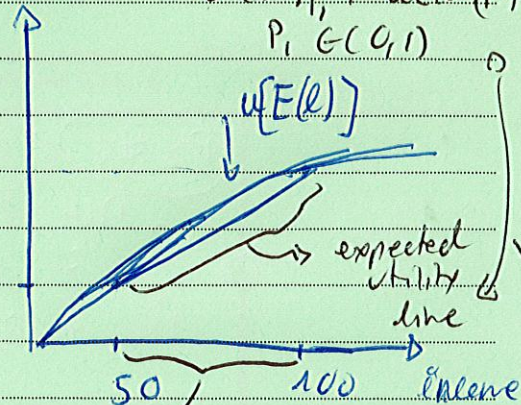 P₁ ∈ (0,1)
u[E(l)]
expected
utility
line
50 100